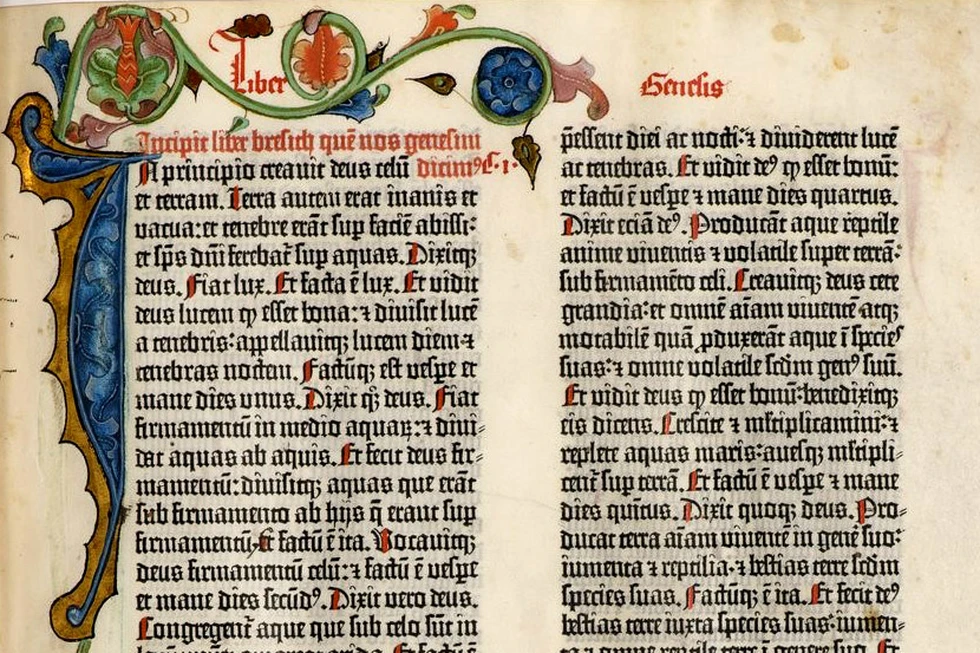 Liber
Genesis
Incipit liber bresich quē nos genesim
IN principio creauit deus celū dicimꝰ C. 1.
et terram. Terra autem erat inanis et
vacua: et tenebre erāt sup faciē abissi:
et spūs dñi ferebat̄ sup aquas. Dixitqꝫ
deus. Fiat lux. Et facta ē lux. Et vidit
deus lucem ꝙ esset bona: ⁊ diuisit lucē
a tenebris: appellauitqꝫ lucem diem ⁊
tenebras noctem. Factūqꝫ est vespe et
mane dies vnus. Dixit qꝫ deus. Fiat
firmamentū in medio aquaꝝ: ⁊ diui-
dat aquas ab aquis. Et fecit deus fir-
mamentū: diuisitqꝫ aquas que erāt
sub firmamento ab hijs q̄ erant sup
firmamentū. Et factū ē ita. Vocauitqꝫ
deus firmamentū celū: ⁊ factū ē vespe
et mane dies secūdꝰ. Dixit vero deus.
Congregent̄ aque que sub celo sūt in
p̄essent diei ac nocti: ⁊ diuiderent lucē
ac tenebras. Et vidit deꝰ ꝙ esset bonū:
et factū ē vespe ⁊ mane dies quartus.
Dixit eciā deꝰ. Producāt aque reptile
anime viuentis ⁊ volatile super terrā:
sub firmamēto celi. Creauitqꝫ deus cete
grandia: et omnē aīam viuentē atqꝫ
motabilē quā ꝓduxerāt aque ī species
suas: ⁊ omne volatile scdm genꝰ suū.
Et vidit deus ꝙ esset bonū: benedixitqꝫ
eis dicens. Crescite ⁊ mltiplicamini: ⁊
replete aquas maris: auesqꝫ mltipli-
cent̄ sup terrā. Et factū ē vespe ⁊ mane
dies quītus. Dixit quoqꝫ deus. Pro-
ducat terra aīam viuentē in genē suo:
iumenta ⁊ reptilia: ⁊ bestias terre scdm
species suas. Factūqꝫ ē ita. Et fecit deꝰ
bestias terre iuxta species suas: iumen-